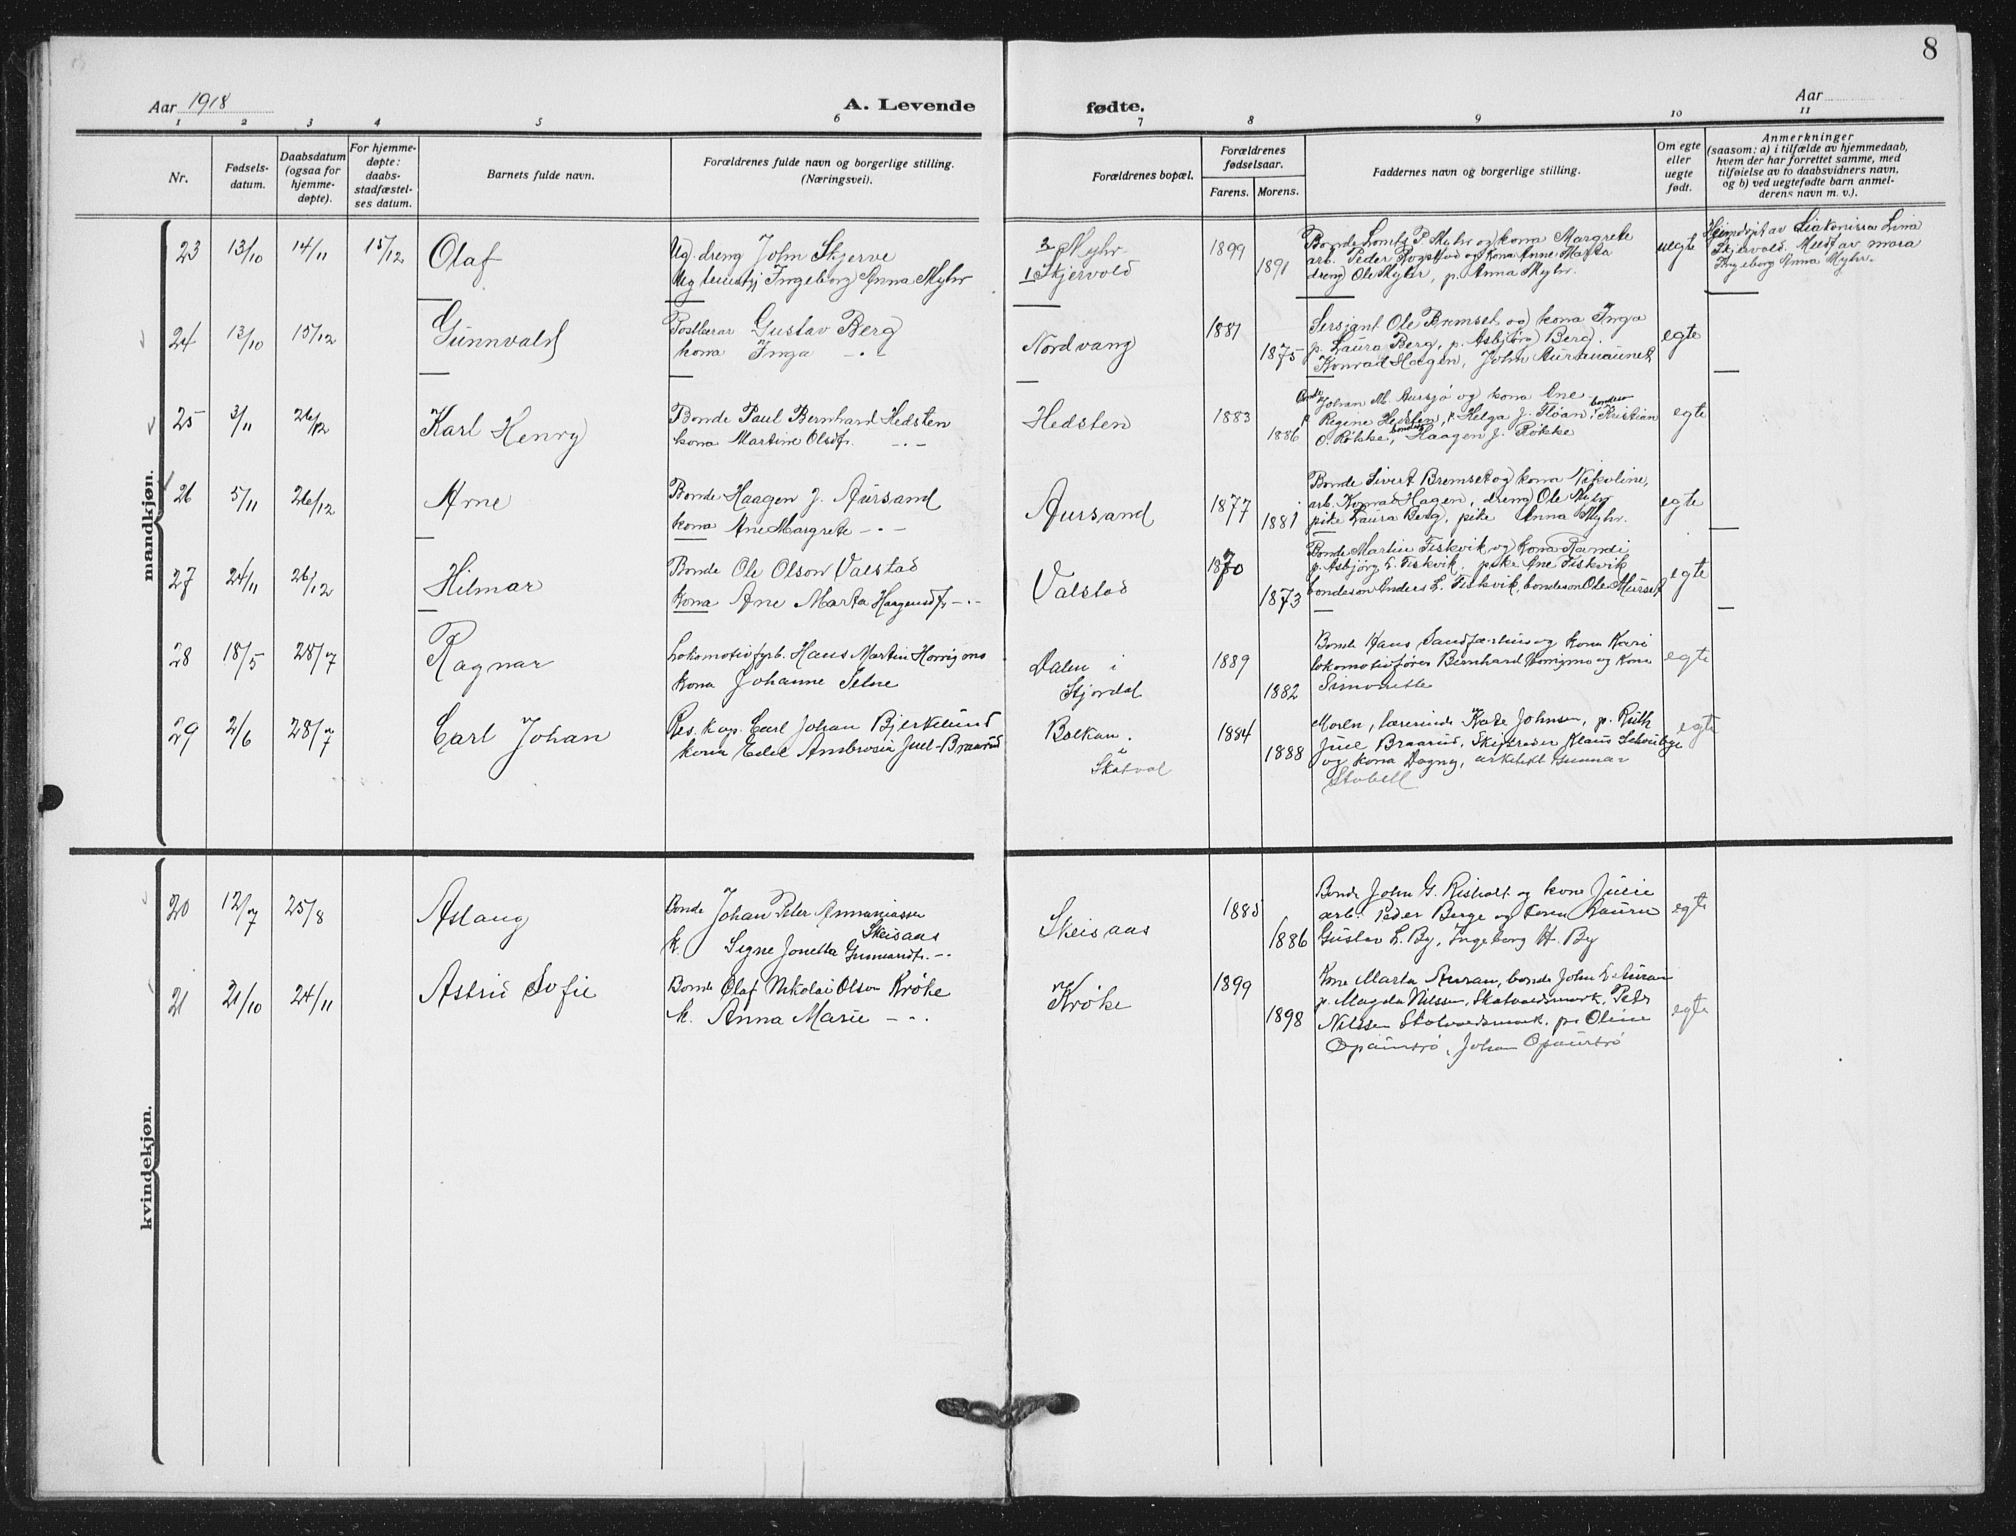 8
Aar 1918
A. Levende fødte.
Aar
1 2 3 4 5 6 7 8 9 10 11
Nr.
Fødsels-
datum.
Daabsdatum
(ogsaa for
hjemme-
døpte).
For hjemme-
døpte:
daabs-
stadfæstel-
ses datum.
Barnets fulde navn.
Forældrenes fulde navn og borgerlige stilling.
(Næringsvei).
Forældrenes bopæl.
Forældrenes
fødselsaar.
Farens. Morens.
Faddernes navn og borgerlige stilling.
Om egte
eller
uegte
født.
Anmerkninger
(saasom: a) i tilfælde av hjemmedaab,
hvem der har forrettet samme, med
tilføielse av to daabsvidners navn,
og b) ved uegtefødte barn anmel-
derens navn m. v.).
mandkjøn.
23 13/10 14/11 15/12 Olaf
Ug. dreng John Skjerve
Ingeborg Anna Myhr
Myhr
Skjervold
1899
1891
Margrete
arb. Peder og kona Anne
dreng Ole Myhr, p. Anna Myhr.
uegte
Lina
Skjervold. av mora
Ingeborg Anna Myhr.
24 13/10 15/12 Gunnvald
Gustav Berg
kona Inga -.-
Nordvang
1881
1875
Sersjant Ole Bremset og kona Inga
p. Laura Berg, p. Asbjørg Berg.
Konrad Hagen, John
egte
25 3/11 26/12 Karl Henry
Bonde Paul Bernhard Hedsten
kona Martine Olsdtr. -.-
Hedsten
1883
1886
Johan M. Aursjø og kona Ane
Regine Hedsten, Helga J. Floan, Kristian
O. Røkke, Haagen J. Røkke
egte
26 5/11 26/12 Arne
Bonde Haagen J. Aursand
kona Ane Margrete -.-
Aursand
1877
1881
Bonde Sivert Bremset og kona Nikoline,
arb. Konrad Hagen, dreng Ole Myhr
pike Laura Berg, pike Anna Myhr.
egte
27 24/11 26/12 Hilmar
Bonde Ole Olson Valstad
kona Ane Marta Haagensdtr -.-
Valstad
1870
1873
Bonde Martin Fiskvik og kona Randi
p. Asbjørg L. Fiskvik, pike Ane Fiskvik
bondeson Anders L. Fiskvik, bondeson Ole
egte
28 18/5 28/7 Ragnar
Hans Martin
kona Johanne Selne
Dalen i
Stjørdal
1889
1882
Bonde Hans og kona Kari
lokomotivfører Bernhard og kona
Simonette
egte
29 2/6 28/7 Carl Johan
Res. kap. Carl Johan Bjerkelund
kona Edel Ambrosia Juel-Braarud
Balkan
i
Skatval
1884
1888
Moren, lærerinde Kate Johnsen, p. Ruth
Juel Braarud, Skipsreder Klaus
og kona Dagny, arkitekt Gunnar
egte
kvindekjøn.
20 12/7 25/8 Aslaug
Bonde Johan Peter Annaniassen
Skeisaas
k. Signe Jonetta -.-
Skeisaas
1885
1886
Bonde John G. og kone Julie
arb. Peder Berge og kona Laura
Gustav L. By, Ingeborg H. By
egte
21 21/10 24/11 Astrid Sofie
Bonde Olaf Nikolai Olsen Krøke
k. Anna Marie -.-
Krøke
1899
1898
Kone Marta Auran, bonde John L. Auran
p. Magda Nilssen, Skatvaldsmark, Peder
Nilssen Skatvaldsmark, p. Oline
Johan
egte